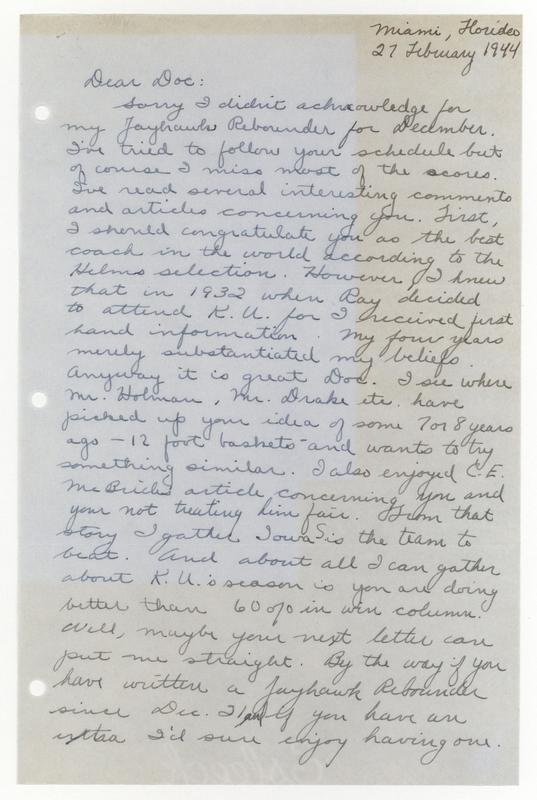 Miami, Florida
27 February 1944
Dear Doc:
Sorry I didn't acknowledge for
my Jayhawk Rebounder for December.
I've tried to follow your schedule but
of course I miss most of the scores.
I've read several interesting comments
and articles concerning you. First,
I should congratulate you as the best
coach in the world according to the
Helms selection. However, I knew
that in 1932 when Ray decided
to attend K.U. for I received first
hand information. My four years
merely substantiated my beliefs.
Anyway it is great Doc. I see where
Mr. Holman, Mr. Drake etc. have
picked up your idea of some 7 or 8 years
ago - 12 foot baskets - and wants to try
something similar. I also enjoyed C.E.
McBride's article concerning you and
your not treating him fair. From that
story I gather Iowa S is the team to
beat. And about all I can gather
about K.U.'s season is you are doing
better than 60% in win column.
Well, maybe your next letter can
put me straight. By the way if you
have written a Jayhawk Rebounder
since Dec. 21 and if you have an
extra I'd sure enjoy having one.